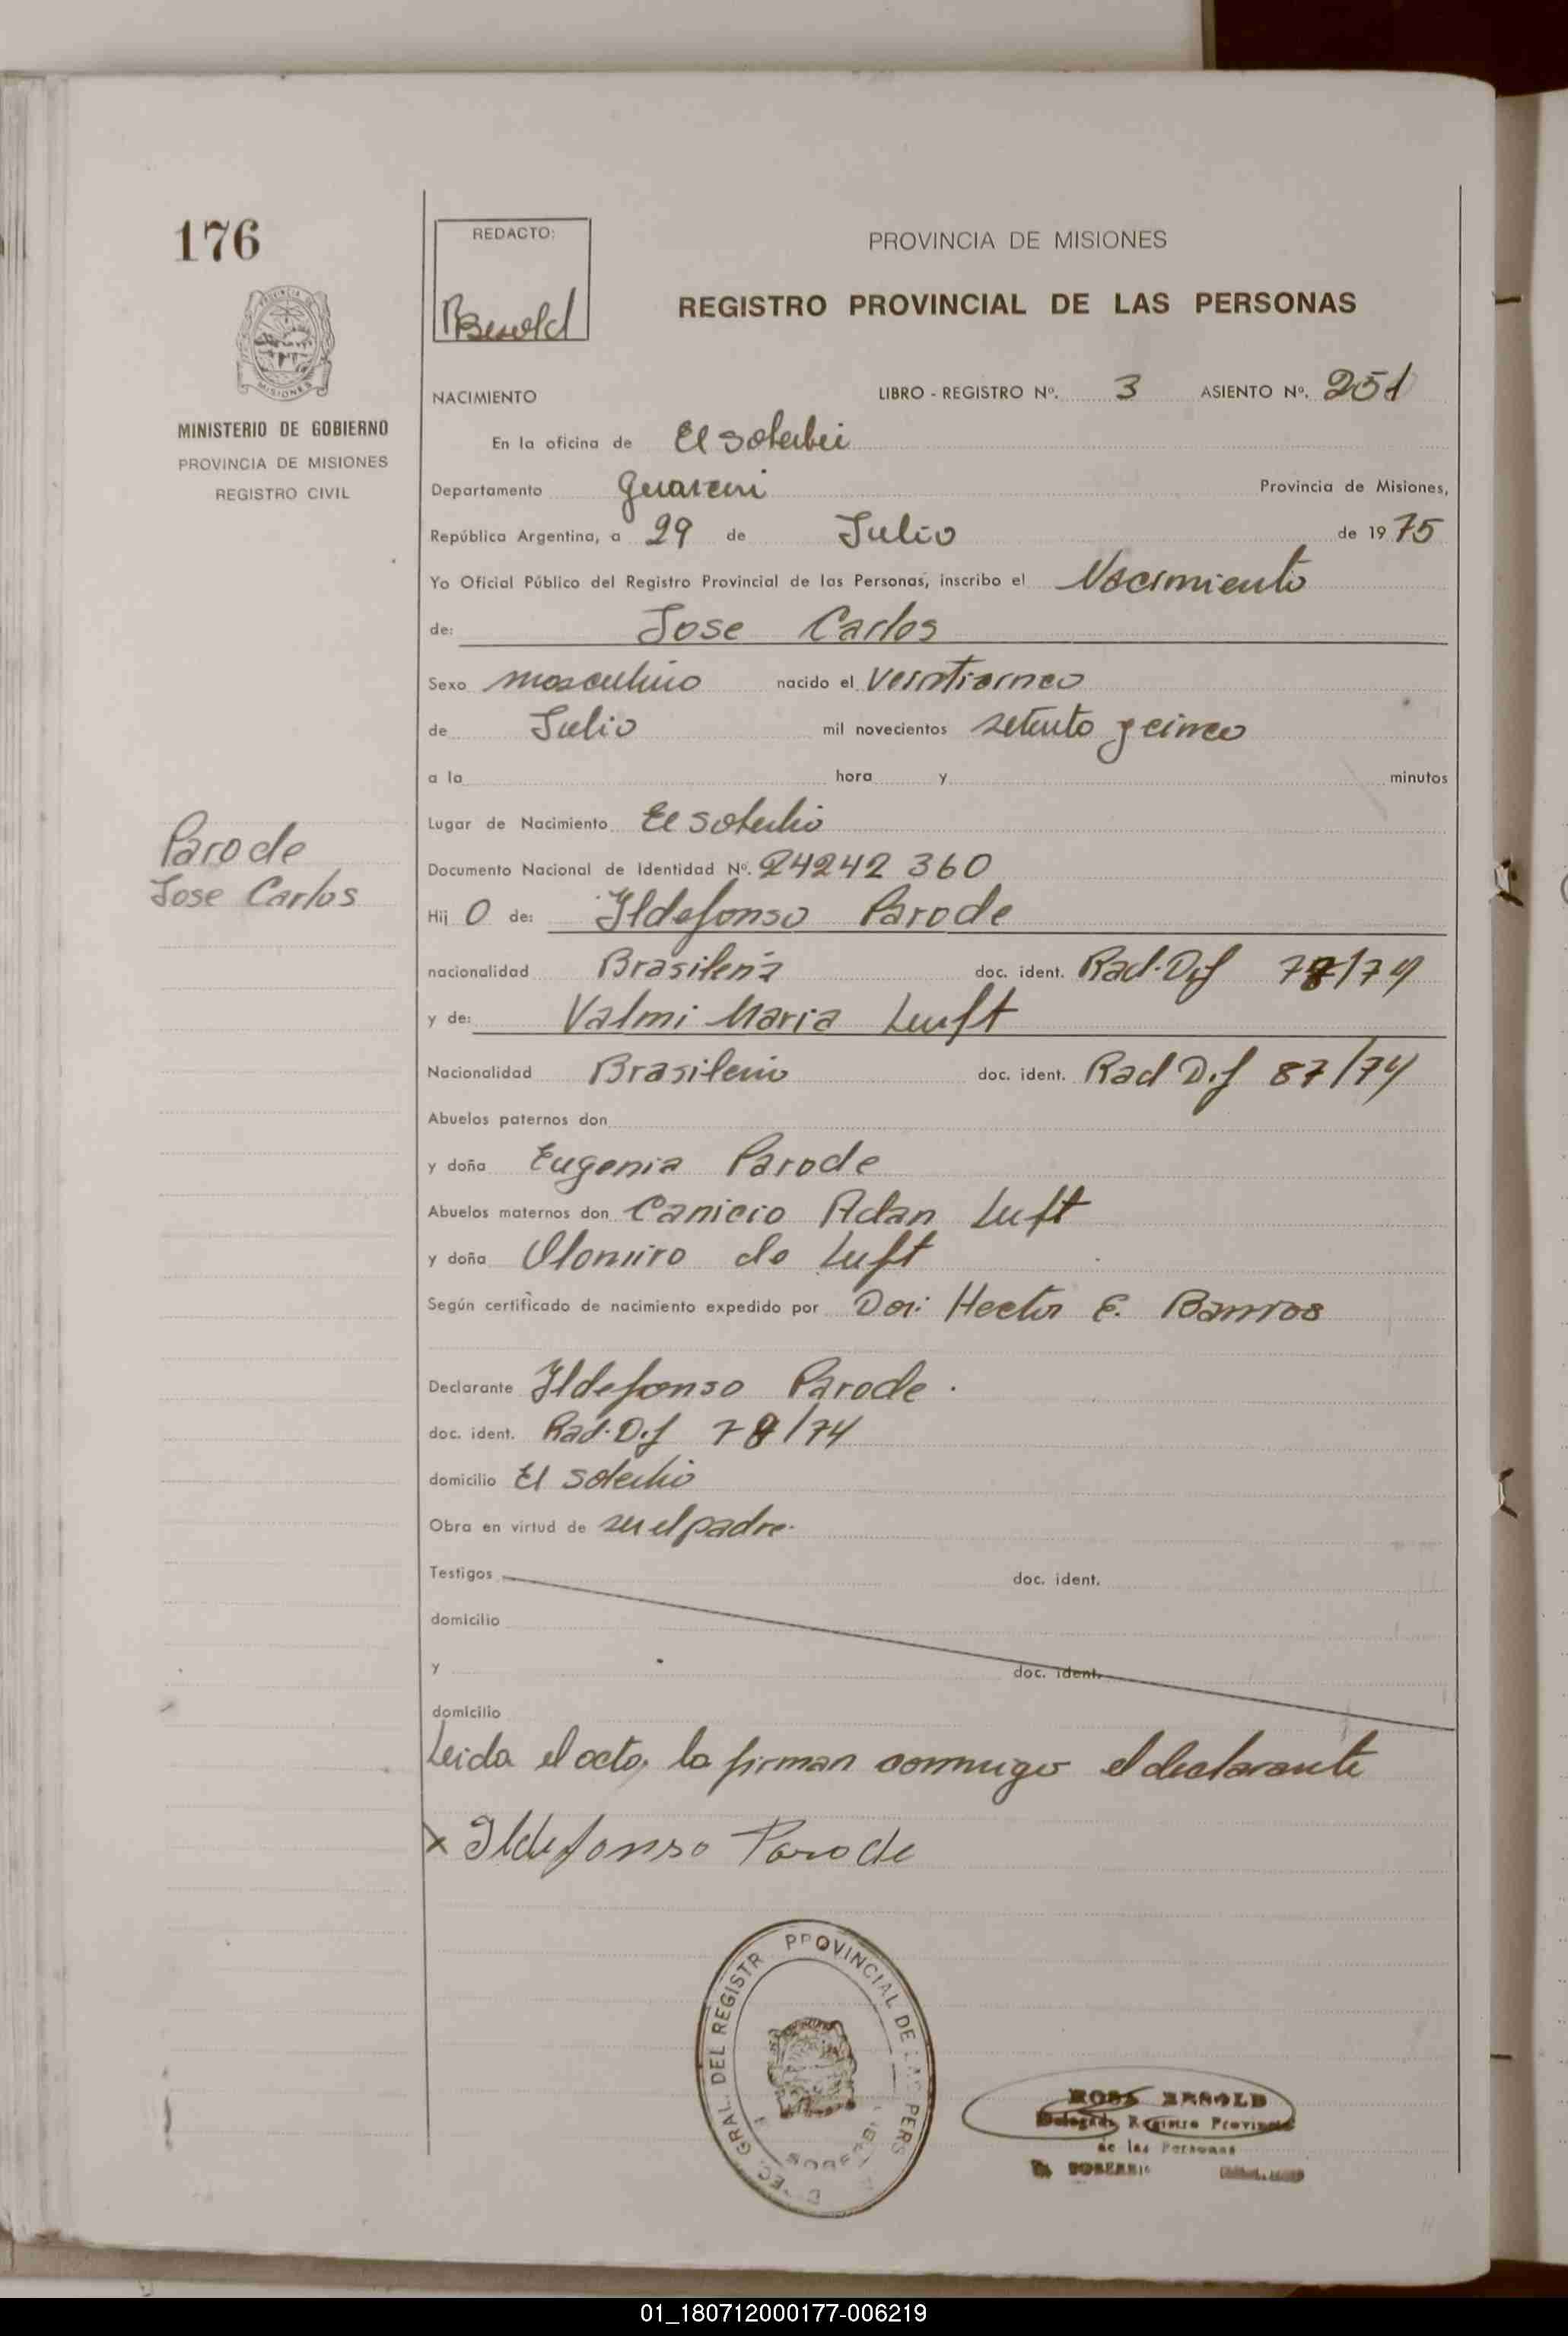 176
PROVINCIA DE MISIONES
MINISTERIO DE GOBIERNO
PROVINCIA DE MISIONES
REGISTRO CIVIL
REDACTO:
RBesold
PROVINCIA DE MISIONES
REGISTRO PROVINCIAL DE LAS PERSONAS
NACIMIENTO LIBRO - REGISTRO Nº. 3 ASIENTO Nº. 251
En la oficina de El Soberbio
Departamento Guarani Provincia de Misiones,
República Argentina, a 29 de Julio de 1975
Yo Oficial Público del Registro Provincial de las Personas, inscribo el Nacimiento
de: Jose Carlos
Sexo masculino nacido el veinticinco
de Julio mil novecientos setenta y cinco
a la hora y minutos
Lugar de Nacimiento El Soberbio
Parode
Jose Carlos
Documento Nacional de Identidad Nº. 24242360
Hij o de: Ildefonso Parode
nacionalidad Brasileña doc. ident. Rad. Def 78/74
y de: Valmi Maria Luft
Nacionalidad Brasileña doc. ident. Rad Def 87/74
Abuelos paternos don
y doña Eugenia Parode
Abuelos maternos don Canicio Adan Luft
y doña de Luft
Según certificado de nacimiento expedido por Hector E. Barrios
Declarante Ildefonso Parode.
doc. ident. Rad. Def 78/74
domicilio El Soberbio
Obra en virtud de ser el padre.
Testigos doc. ident.
domicilio
y doc. ident.
domicilio
Leida el acta, la firman conmigo el declarante
x Ildefonso Parode
GRAL. DEL REGISTR PROVINCIAL DE LAS PERS
ROSA BESOLD
Delegada Registro Provincial
de las Personas
EL SOBERBIO
01_180712000177-006219